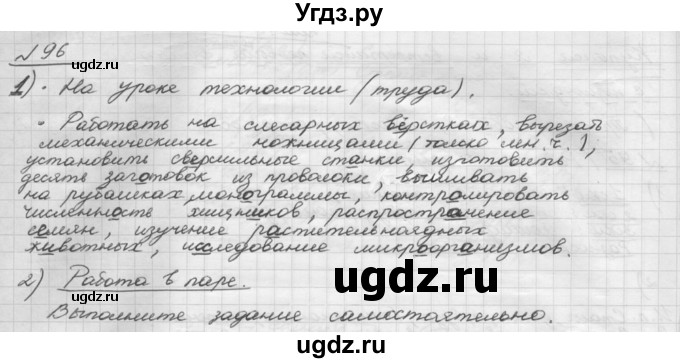 Угдз.ру
№96
ugdz.ru
1) • На уроке технологии (труда).
ugdz.ru
• Работать на слесарных вёрстках, вырезать
механическими ножницами (только мн.ч.),
установить сверлильные станки, изготовить
десять заготовок из проволоки, вышивать
на рубашках монограммы, контролировать
численность хищников, распространение
семян, изучение растительноядных
животных, исследование микроорганизмов.
ugdz.ru
2) Работа в паре.
ugdz.ru
Выполните задание самостоятельно.
ugdz.ru
ugdz.ru